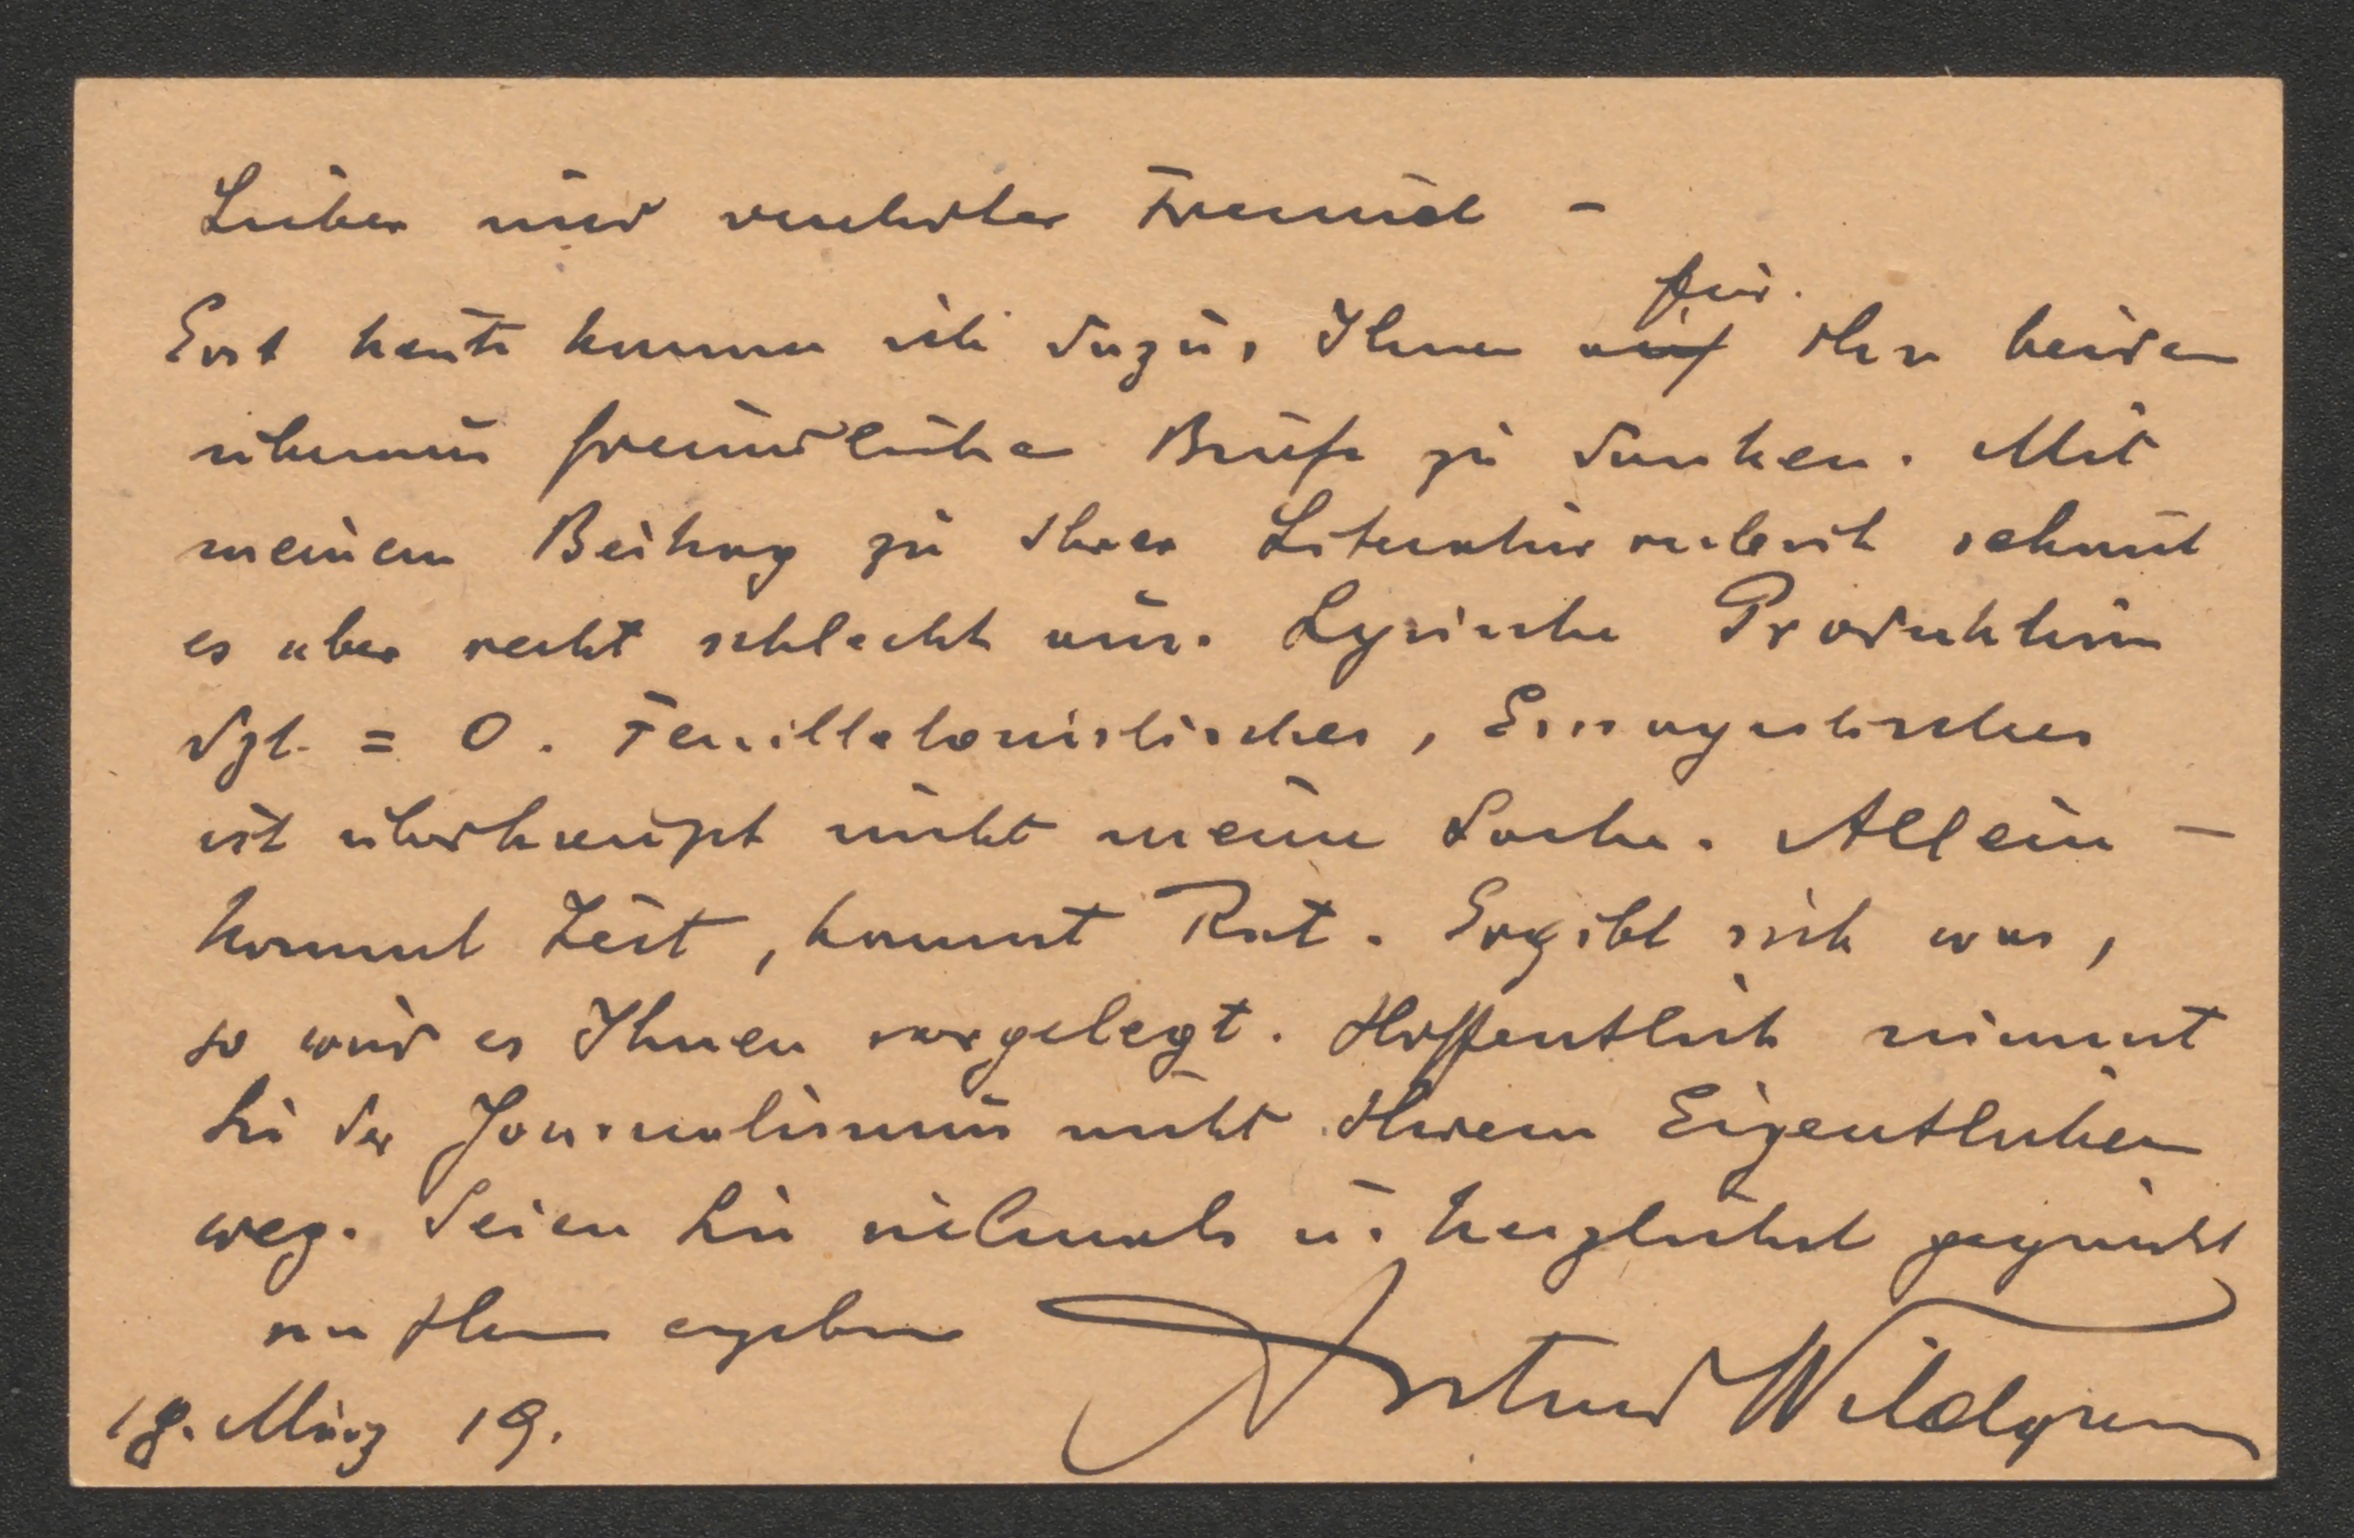 Lieber und verehrter Freund –
für
Erst heute komme ich dazu, Ihnen auf Ihre beiden
überaus freundlichen Briefe zu danken. Mit
meinem Beitrag zu Ihrer Literaturrubrik schaut
es aber recht schlecht aus. Lyrische Produktion
dzt. = 0. Feuilletonistisches, Essayistisches
ist überhaupt nicht meine Sache. Allein –
kommt Zeit, kommt Rat. Ergibt sich was,
so wird es Ihnen vorgelegt. Hoffentlich nimmt
Sie der Journalismus nicht Ihrem Eigentlichen
weg. Seien Sie vielmals u. herzlichst gegrüßt
von Ihrem ergebenen
Anton Wildgans
18. März 19.